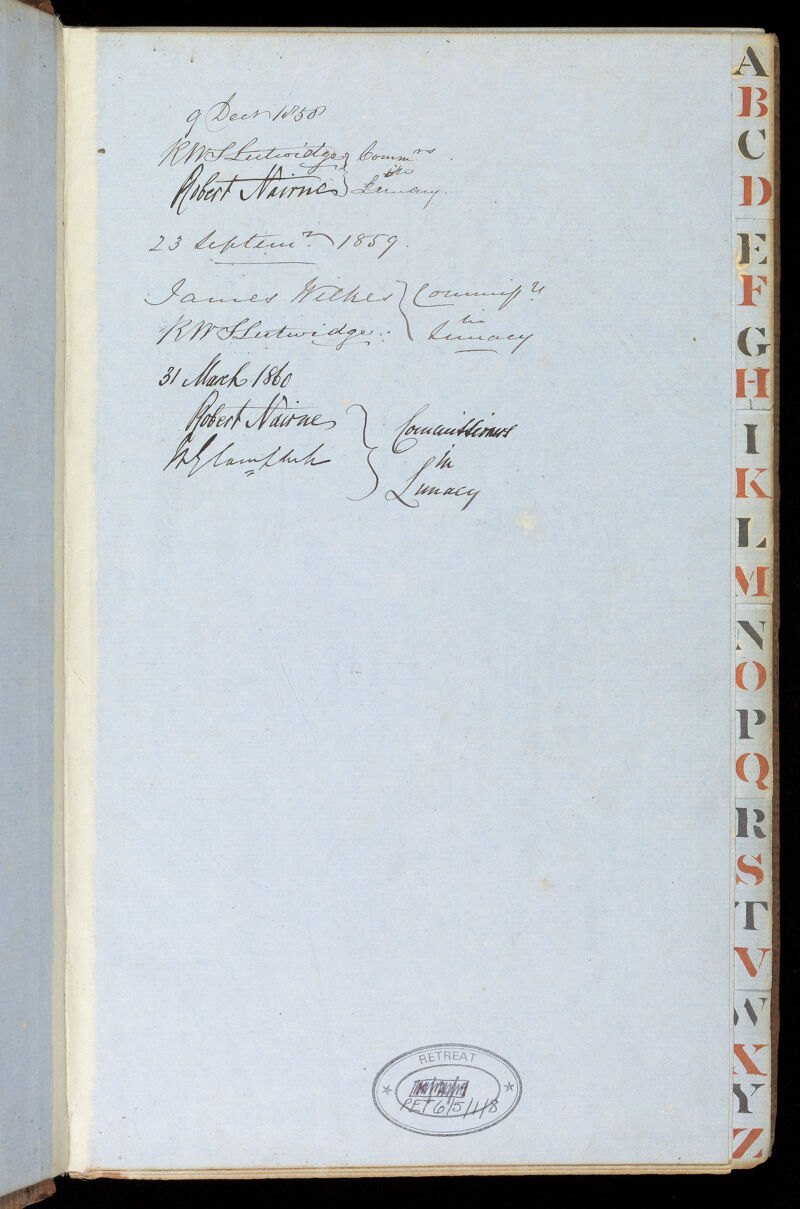 9 Decr 1858
RWS Lutwidge } Commrs
Robert Nairne } in Lunacy.
23 Septemr 1859.
James Wilkes } Commissrs
RWS Lutwidge } in Lunacy
31 March 1860
Robert Nairne } Commissioners
WG Campbell } in
Lunacy
A
B
C
D
E
F
G
H
I
K
L
M
N
O
P
Q
R
S
T
V
W
X
Y
Z
RETREAT
RET 6/5/1/8